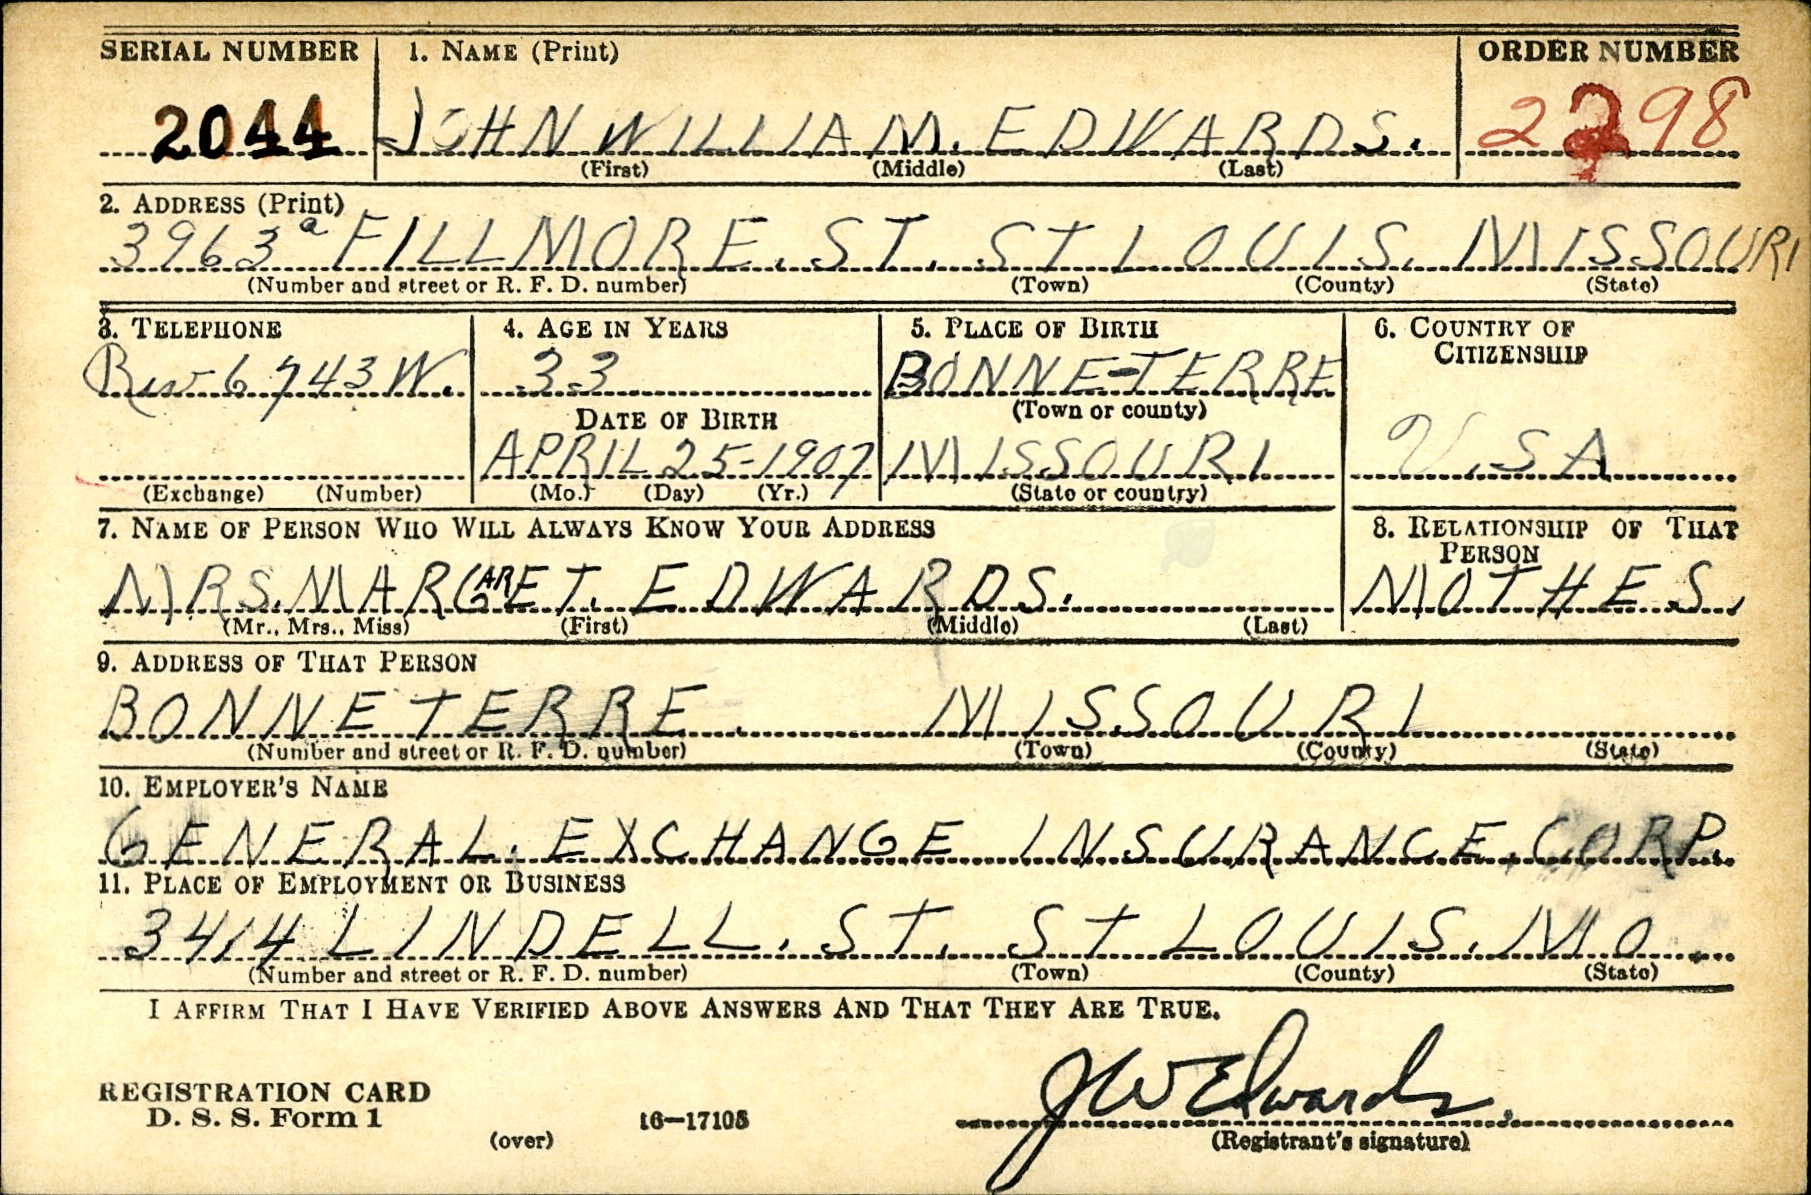 SERIAL NUMBER 1. NAME (Print) ORDER NUMBER
2044 JOHN WILLIAM. EDWARDS. 2298
(First) (Middle) (Last)
2. ADDRESS (Print)
3963a FILLMORE. ST. ST LOUIS. MISSOURI
(Number and street or R. F. D. number) (Town) (County) (State)
3. TELEPHONE 4. AGE IN YEARS 5. PLACE OF BIRTH 6. COUNTRY OF
CITIZENSHIP
6743W. 33 BONNE-TERRE
DATE OF BIRTH (Town or county)
APRIL 25-1907 MISSOURI U.SA
(Exchange) (Number) (Mo.) (Day) (Yr.) (State or country)
7. NAME OF PERSON WHO WILL ALWAYS KNOW YOUR ADDRESS 8. RELATIONSHIP OF THAT
PERSON
MRS. MARGARET. EDWARDS. MOTHES.
(Mr., Mrs., Miss) (First) (Middle) (Last)
9. ADDRESS OF THAT PERSON
BONNE TERRE. MISSOURI
(Number and street or R. F. D. number) (Town) (County) (State)
10. EMPLOYER'S NAME
GENERAL. EXCHANGE INSURANCE. CORP.
11. PLACE OF EMPLOYMENT OR BUSINESS
3414 LINDELL. ST. ST LOUIS. MO.
(Number and street or R. F. D. number) (Town) (County) (State)
I AFFIRM THAT I HAVE VERIFIED ABOVE ANSWERS AND THAT THEY ARE TRUE.
J W Edwards.
REGISTRATION CARD
D. S. S. Form 1 16—17105
(over) (Registrant's signature)